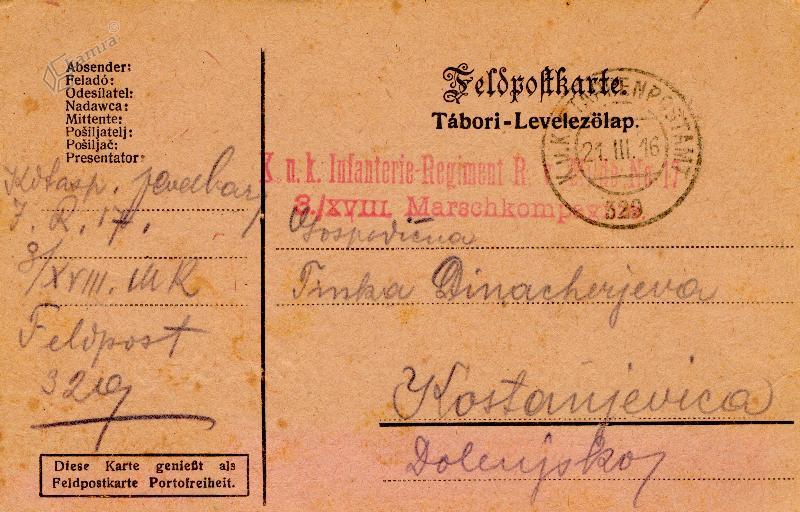 Kamra
Absender:
Feladó:
Odesílatel:
Nadawca:
Mittente:
Pošiljatelj:
Pošiljač:
Presentator:
I. R. 17.
8/XVIII. MK
Feldpost
329
Diese Karte genießt als
Feldpostkarte Portofreiheit.
Feldpostkarte.
Tábori-Levelezőlap.
K. u. K. ETAPPENPOSTAMT
21. III. 16
329
K. u. k. Infanterie-Regiment R. v. Milde No. 17
8./XVIII. Marschkompanie
Gospodična
Tinka Dinacherjeva
Kostanjevica
Dolenjsko